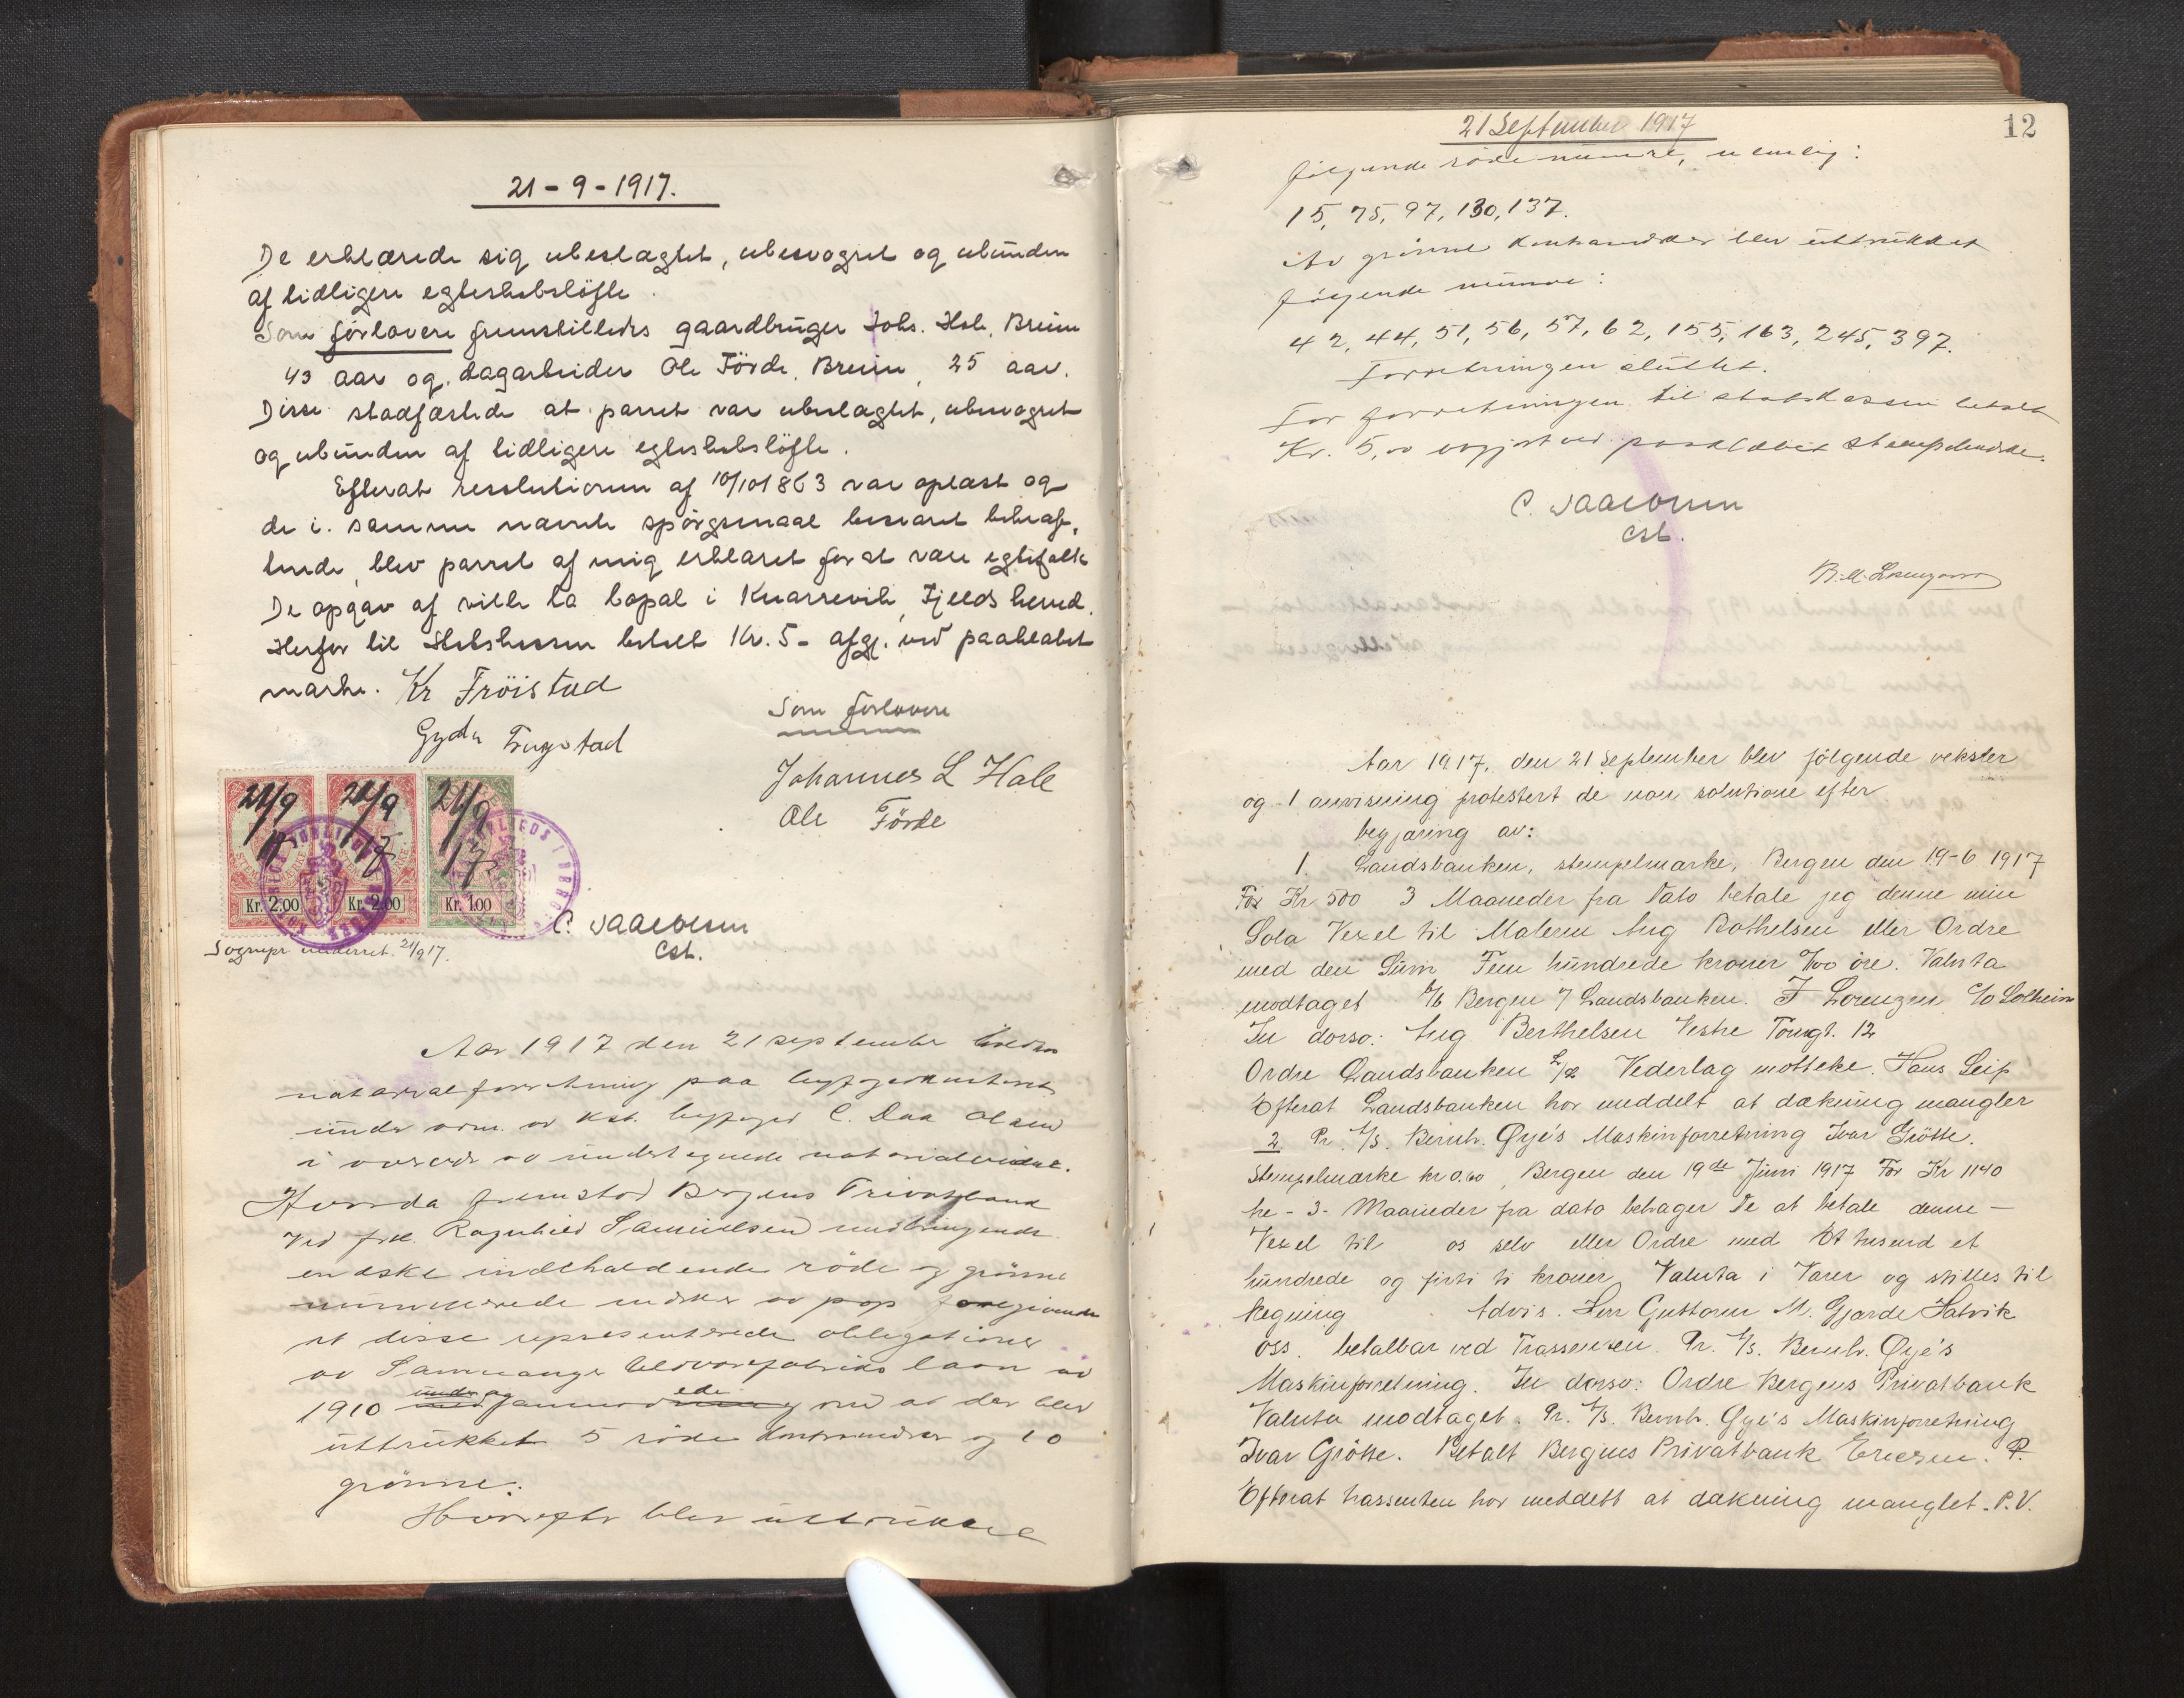 21-9-1917.
De erklærede sig ubeslægtet, ubesvogret og ubunden
af tidligere egteskabsløfte.
Som forlovere fremstilledes gaardbruger Johs. Hole, Breim
43 aar og dagarbeider Ole Förde, Breim, 25 aar.
Disse stadfæstede at parret var ubeslagtet, ubesvogret
og ubunden af tidligere egteskabsløfte.
Efterat resolutionen af 10/10 1863 var oplæst og
de i samme nævnte spörgsmaal besvaret bekræf-
tende, blev parret af mig erklæret for at være egtefolk
De opgav at ville ta bopæl i Knarrevik, Fjelds herred.
Herfor til Statskassen betalt Kr. 5- afgj. ved paaklæbet
marke. Kr Fröistad
Gyda Frøystad
Som forlovere
Johannes L Hole
Ole Förde
21/9 17 21/9 17 21/9 17
Kr. 2,00 Kr. 2,00 Kr. 1,00
C. Daae Olsen
cst.
Sognepr underret. 21/9 17.
Aar 1917 den 21 september holdtes
notarialforretning paa byfogedkontoret
under adm. av kst. byfoged C. Daa Olsen
i overvær av undertegnede notarialvidne.
Hvorda fremstod Bergens Privatbank
ved frk. Ragnhild Samuelsen medbringende
en æske indeholdende röde og grönne
nummererede merker av pap foregivende
at disse representerede obligationer
av Samnanger Uldvarefabriks laan av
1910 under og anmodede om at der blev
uttrukket 5 röde kontramerker og 10
grönne.
Hvorefter blev uttrukket
21 September 1917
12
følgende röde numre, nemlig:
15, 75, 97, 130, 137.
Av grönne kontramerker blev uttrukket
følgende numre:
42, 44, 51, 56, 57, 62, 155, 163, 245, 397.
Forretningen sluttet.
For forretningen til statskassen betalt
Kr. 5,00 avgjort ved paaklæbet stempelmerke.
C. Daae Olsen
cst.
Aar 1917, den 21 September blev følgende veksler
og 1 anvisning protestert de non solutione efter
begjæring av:
1. Landsbanken, stempelmærke, Bergen den 19-6 1917
For Kr 500 3 Maaneder fra Dato betale jeg denne min
Sola Vexel til Maleren Aug Bathelsen eller Ordre
med den Sum Fem hundrede kroner %00 øre. Valuta
modtaget Bergen Landsbanken. F Lorenzen c/o Solheim
In dorso: Aug Berthelsen Vestre Torvgt. 12
Ordre Landsbanken Vederlag motteke. Hans Seip
Efterat Landsbanken har meddelt at dækning mangler
2 Pr. A/S. Bernh. Øye's Maskinforretning Ivar Grötte.
Stempelmærke kr 0.60, Bergen den 19de Juni 1917 For Kr 1140
he- 3- Maaneder fra dato behager De at betale denne-
Vexel til os selv eller Ordre med Et tusend et
hundrede og firti ti kroner, Valuta i Varer og stilles til
Regning Advis. Herr Guttorm M. Gjerde Hatvik
Oss. betalbar ved Trassenten Pr. A/S. Bernh. Øye's
Maskinforretning. In dorso: Ordre Bergens Privatbank
Valuta modtaget. Pr. A/S. Bernh. Øye's Maskinforretning
Ivar Grötte. Betalt Bergens Privatbank Ericsen. P.
Efterat trassenten har meddelt at dækning manglet. P.V.